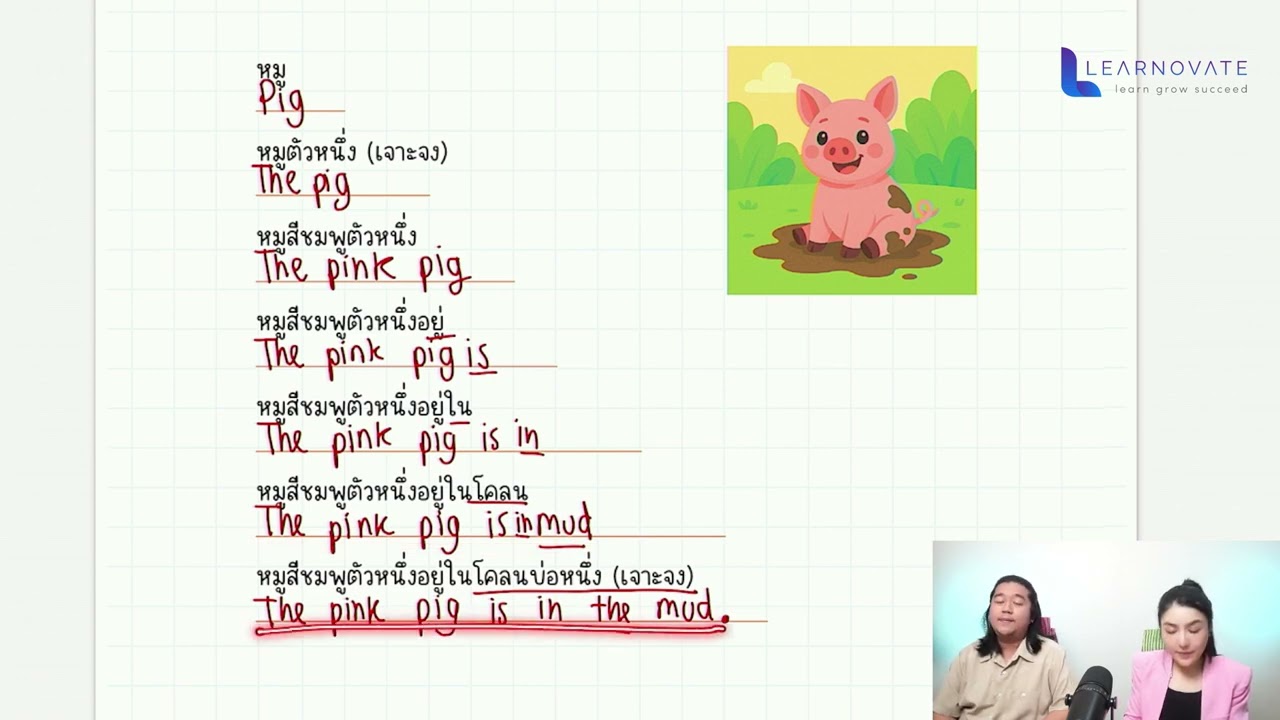 หมู
Pig
หมูตัวหนึ่ง (เจาะจง)
The pig
หมูสีชมพูตัวหนึ่ง
The pink pig
หมูสีชมพูตัวหนึ่งอยู่
The pink pig is
หมูสีชมพูตัวหนึ่งอยู่ใน
The pink pig is in
หมูสีชมพูตัวหนึ่งอยู่ในโคลน
The pink pig is in mud
หมูสีชมพูตัวหนึ่งอยู่ในโคลนบ่อหนึ่ง (เจาะจง)
The pink pig is in the mud.
LEARNOVATE
learn grow succeed